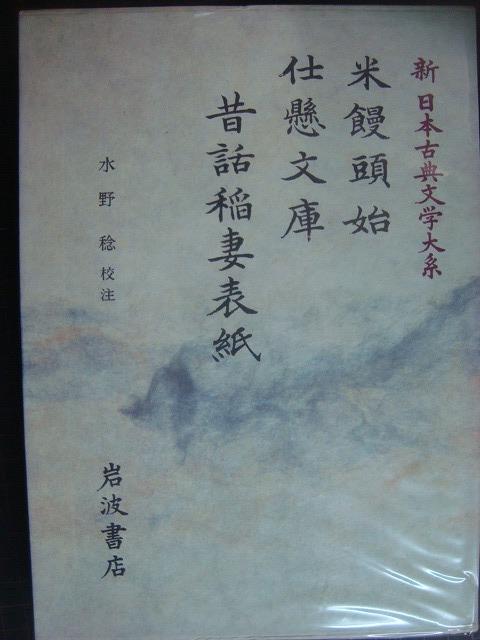 新日本古典文学大系
米饅頭始
仕懸文庫
昔話稲妻表紙
水野稔校注
岩波書店